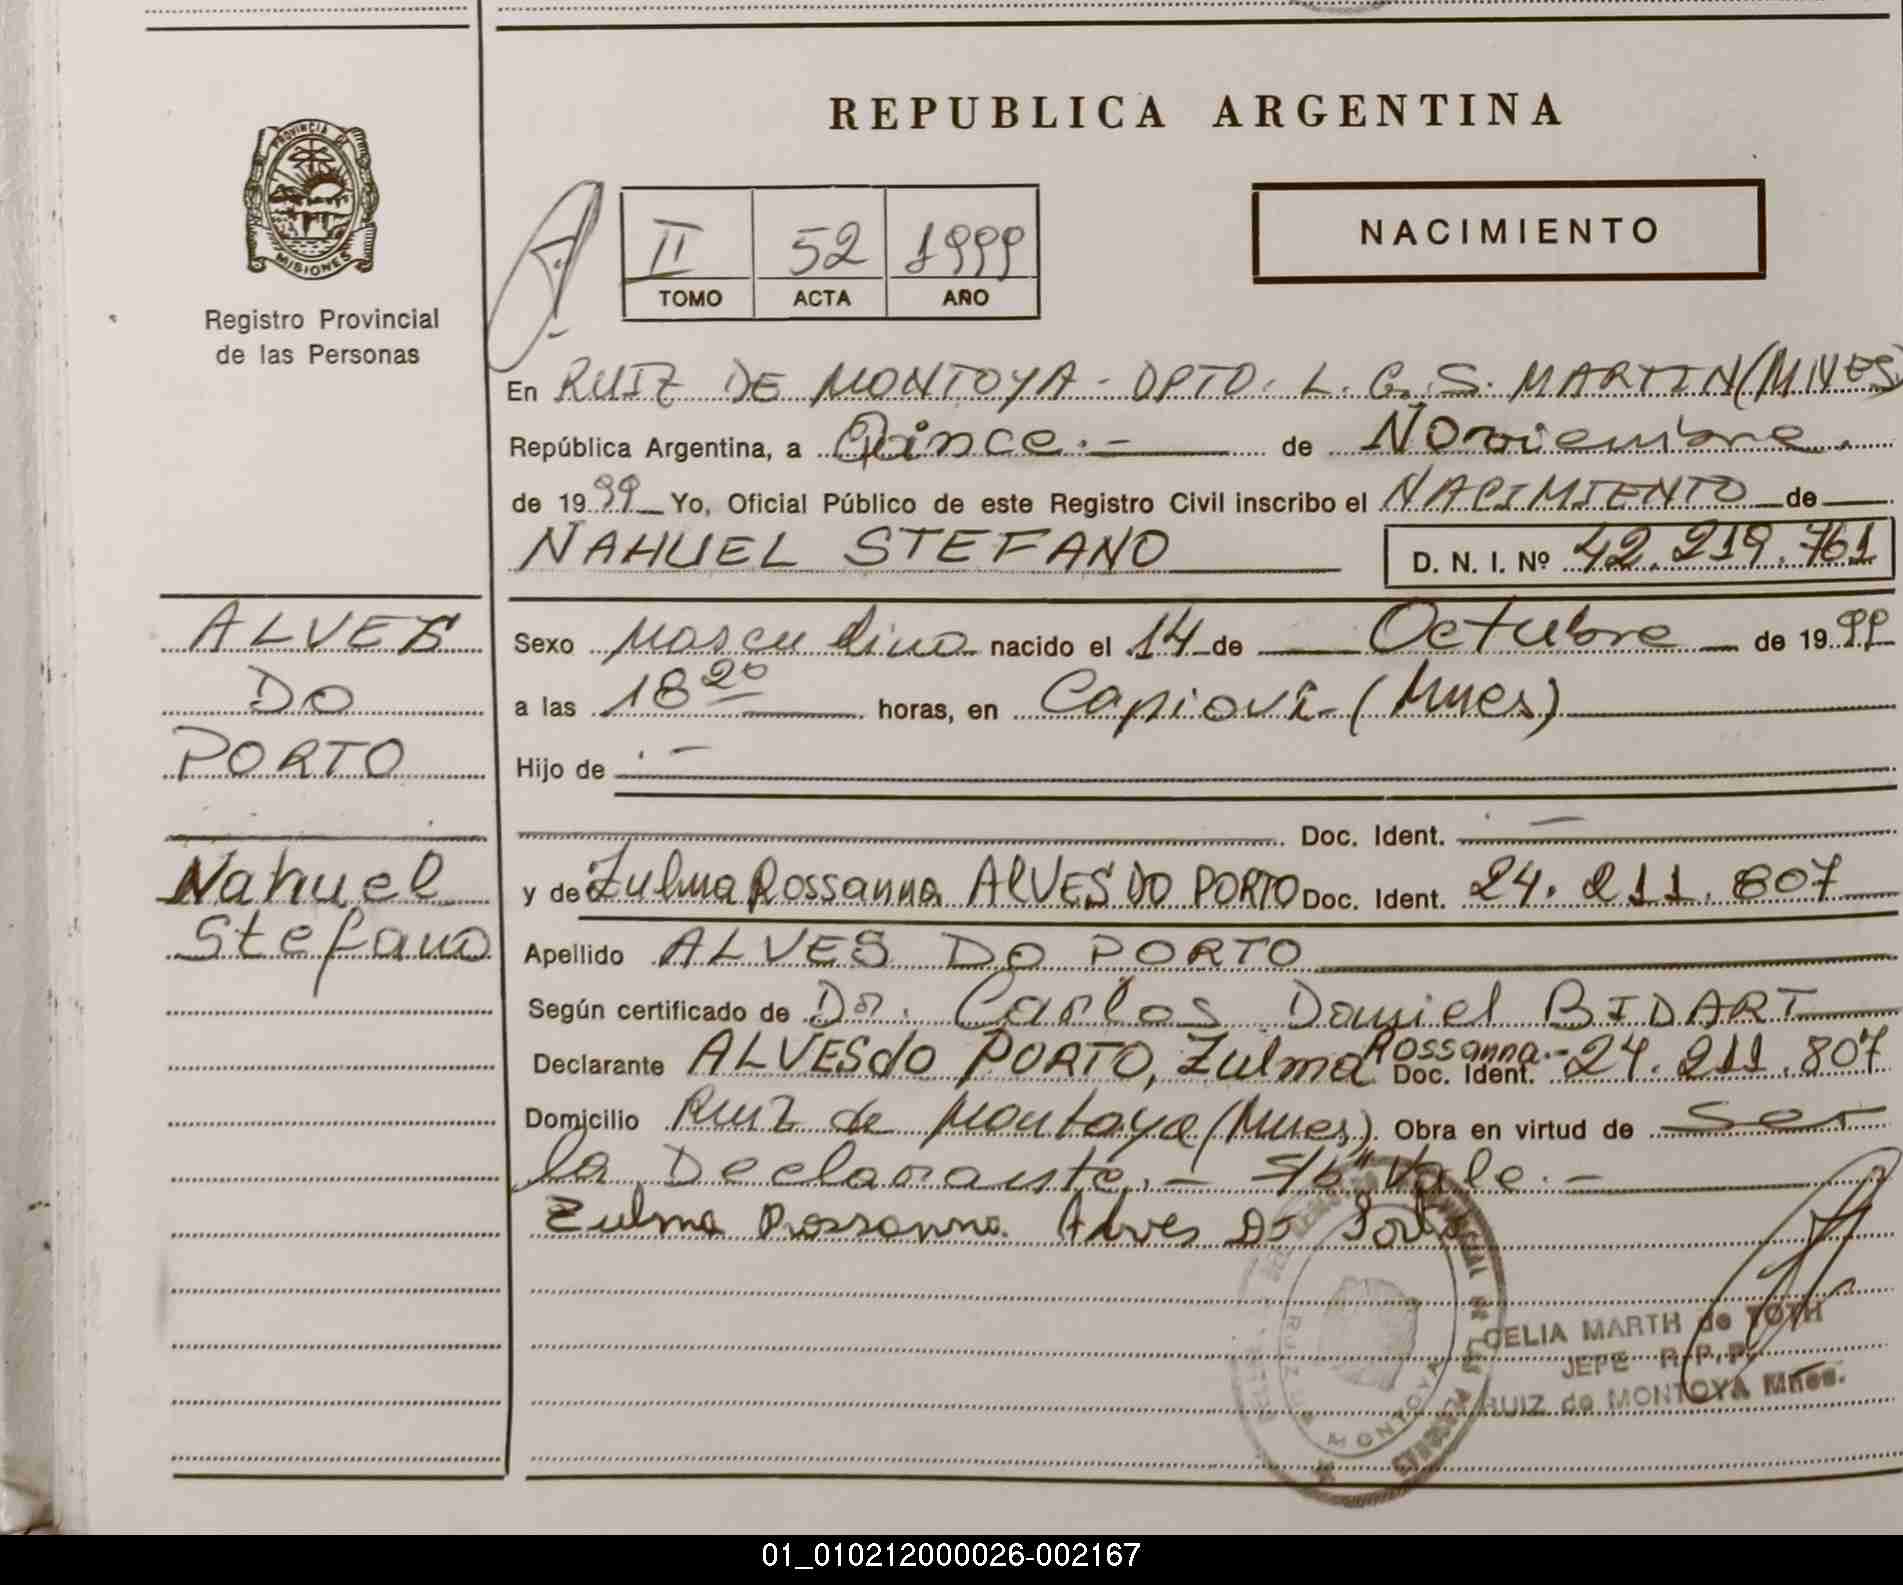 REPUBLICA ARGENTINA
PROVINCIA DE
MISIONES
Registro Provincial
de las Personas
II 52 1999
TOMO ACTA AÑO
NACIMIENTO
En RUIZ DE MONTOYA - DPTO. L. G. S. MARTIN (MNES)
República Argentina, a Quince.- de Noviembre.
de 1999 Yo, Oficial Público de este Registro Civil inscribo el NACIMIENTO de
NAHUEL STEFANO D. N. I. Nº 42.219.761
ALVES
DO
PORTO
Nahuel
Stefano
Sexo Masculino nacido el 14 de Octubre de 1999
a las 18 20 horas, en Capioví - (Mnes)
Hijo de . -
Doc. Ident. . -
y de Zulma Rossanna ALVES DO PORTO Doc. Ident. 24.211.807
Apellido ALVES DO PORTO
Según certificado de Dr. Carlos Daniel BIDART
Declarante ALVES dO PORTO, Zulma Rossanna.- Doc. Ident. 24.211.807
Domicilio Ruiz de Montoya (Mnes). Obra en virtud de Ser
la Declarante.- Vale.-
Zulma Rossanna Alves Do Porto
CELIA MARTH de TOTH
JEFE R.P.P.
RUIZ de MONTOYA Mnes.
RUIZ DE MONTOYA
01_010212000026-002167